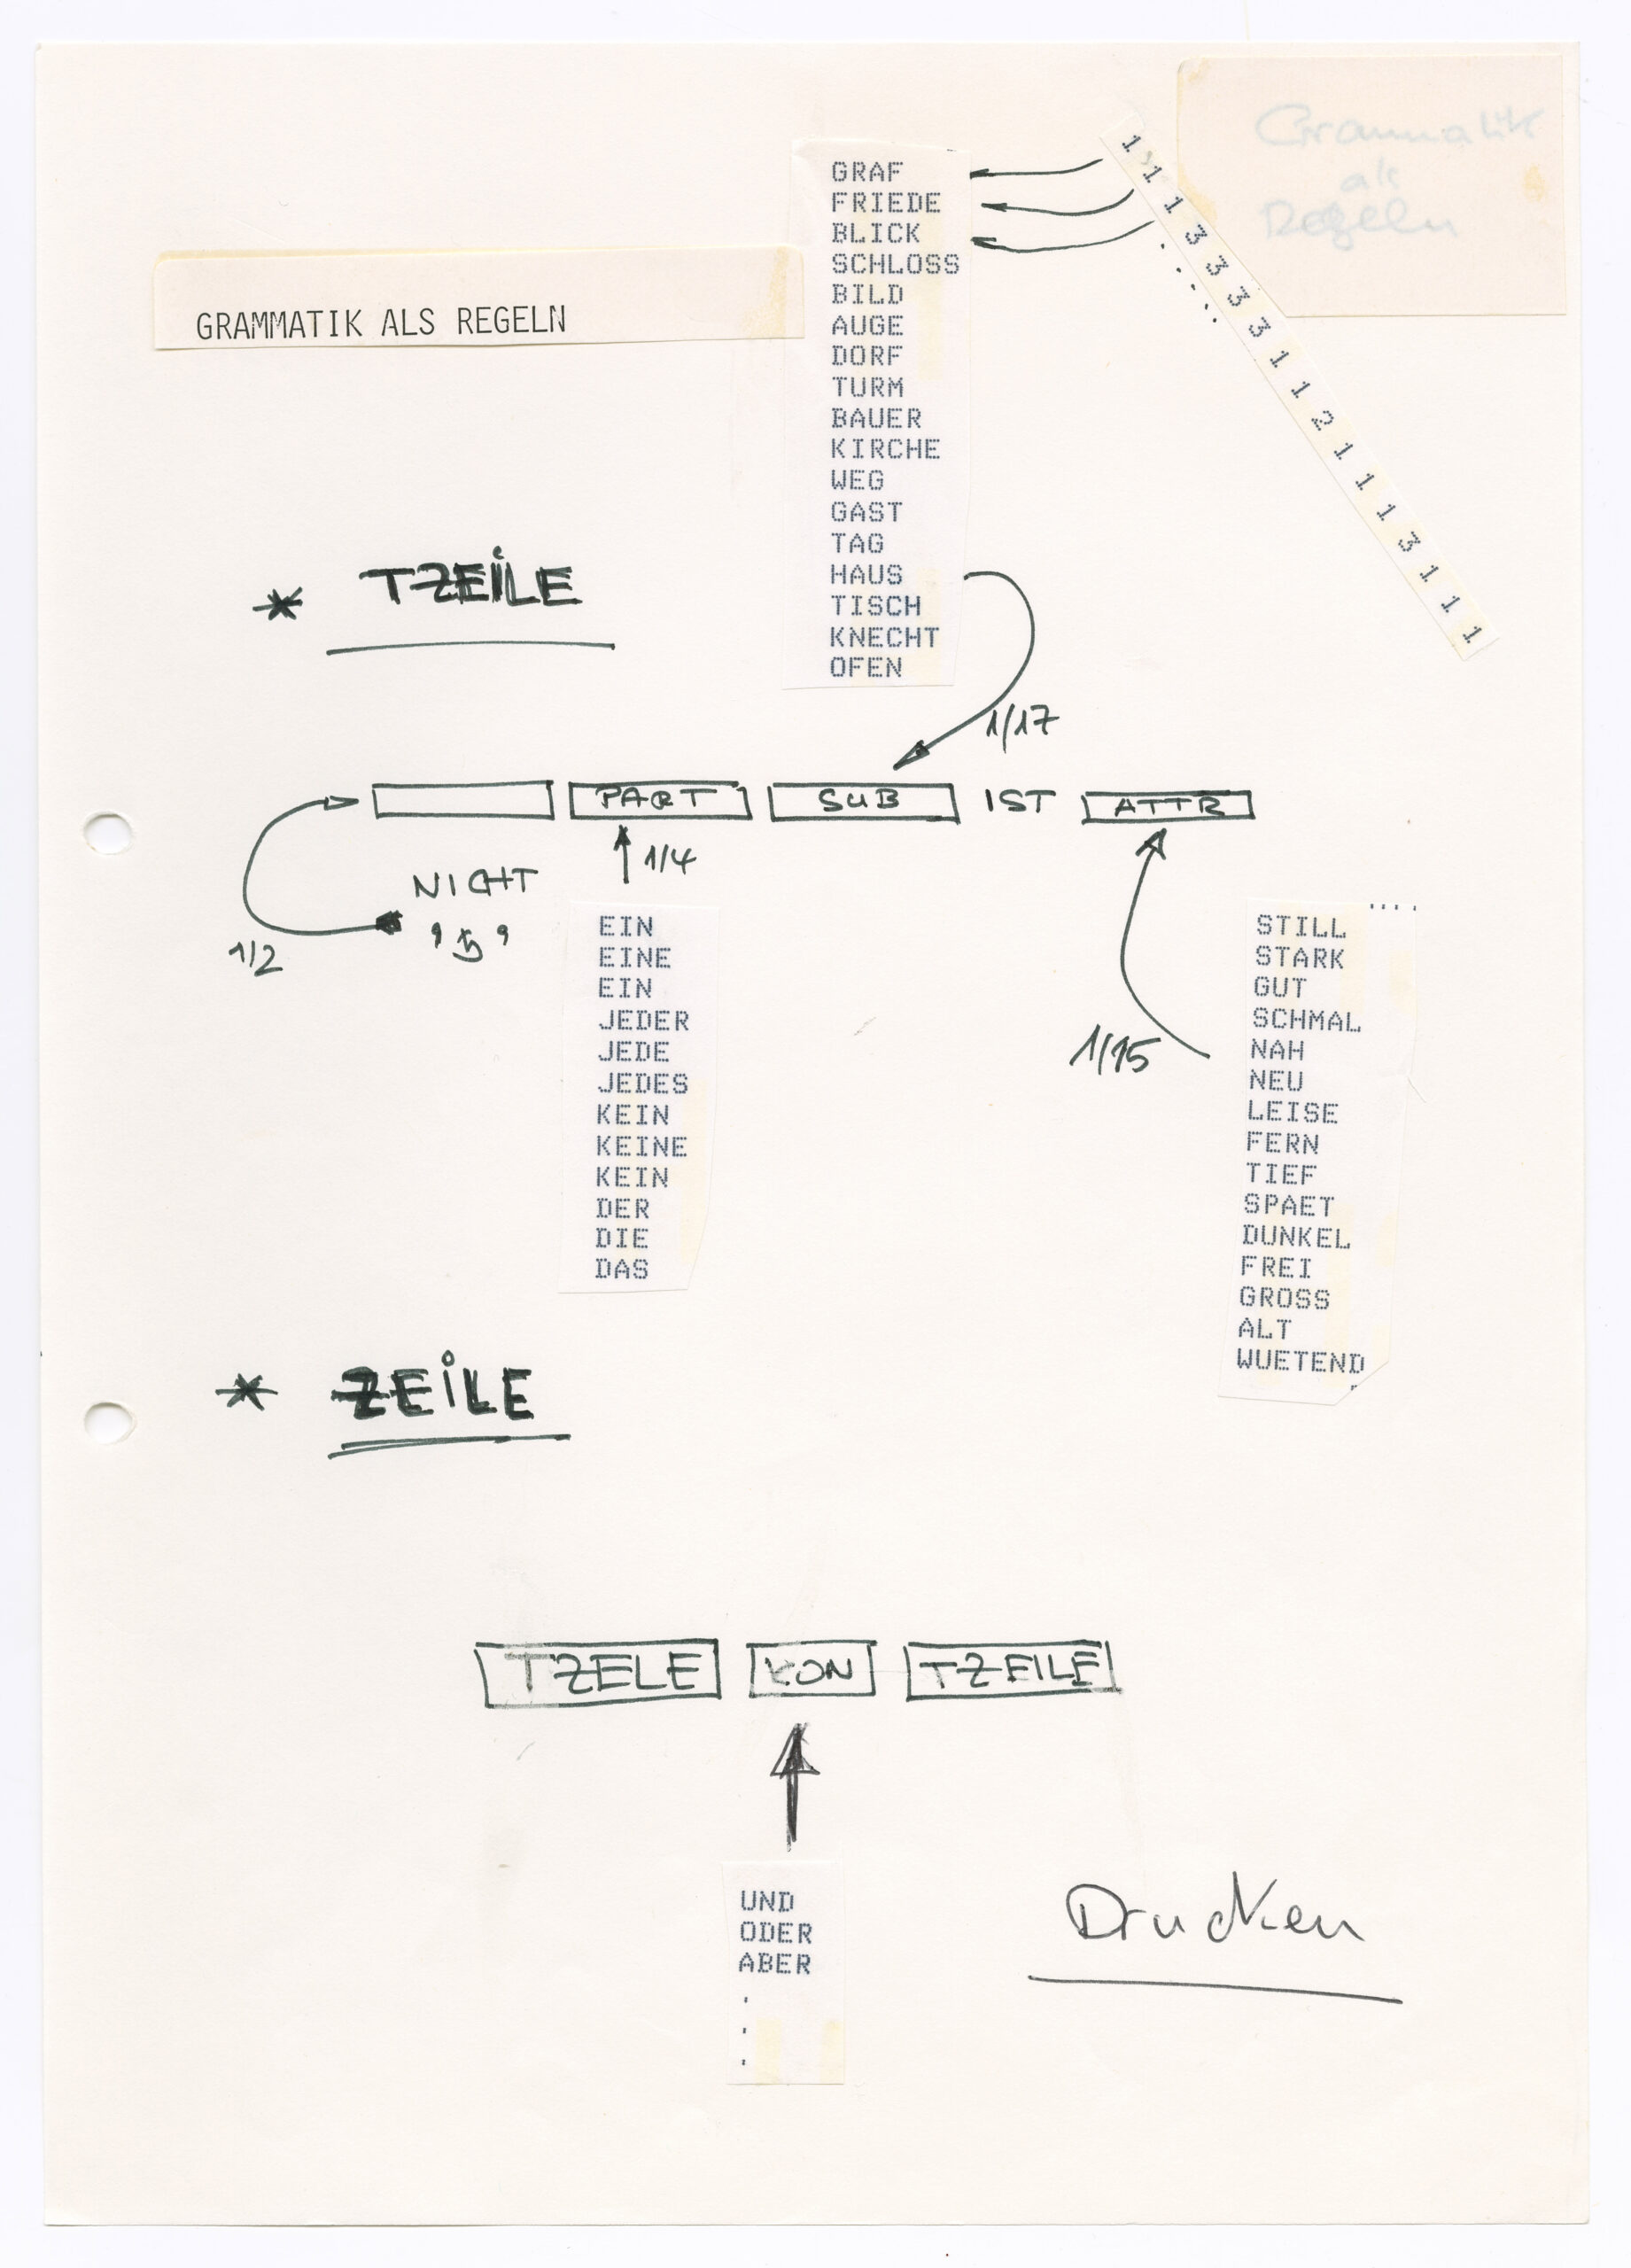 Grammatik
als
Regeln
GRAMMATIK ALS REGELN
GRAF
FRIEDE
BLICK
SCHLOSS
BILD
AUGE
DORF
TURM
BAUER
KIRCHE
WEG
GAST
TAG
HAUS
TISCH
KNECHT
OFEN
1,1 1 3 3 3 3 1 1 2 1 1 1 3 1 1 1
* TZEILE
1/17
PART SUB IST ATTR
1/4
NICHT
1/2
EIN
EINE
EIN
JEDER
JEDE
JEDES
KEIN
KEINE
KEIN
DER
DIE
DAS
1/15
STILL
STARK
GUT
SCHMAL
NAH
NEU
LEISE
FERN
TIEF
SPAET
DUNKEL
FREI
GROSS
ALT
WUETEND
* ZEILE
TZELE KON TZEILE
UND
ODER
ABER
.
.
.
Drucken